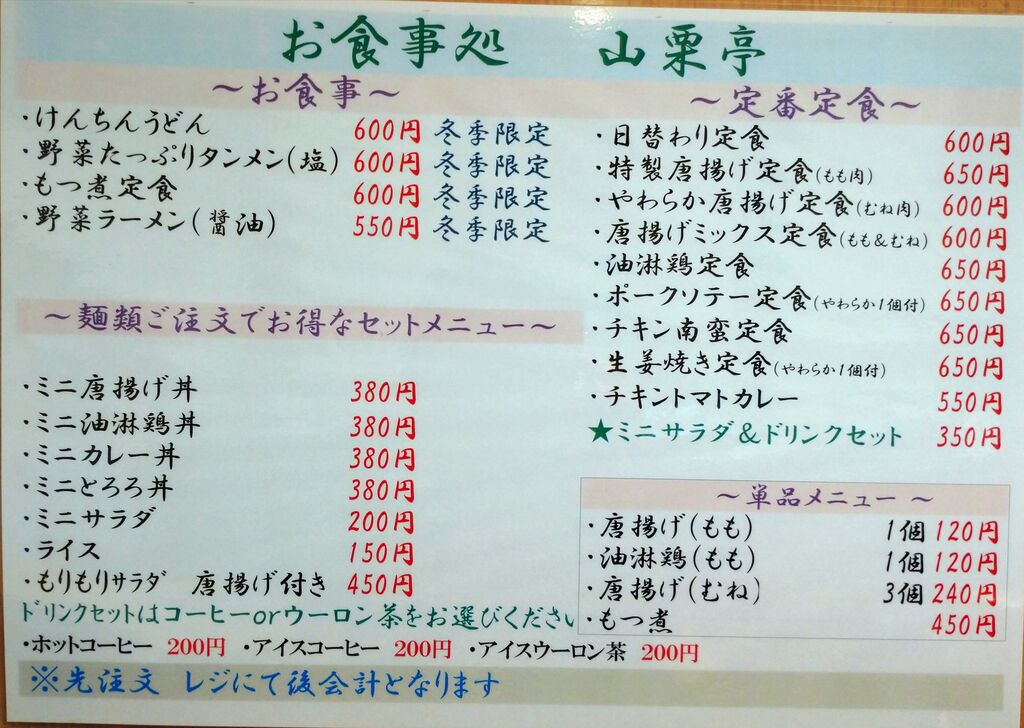 お食事処　山栗亭
～お食事～
・けんちんうどん 600円 冬季限定
・野菜たっぷりタンメン(塩) 600円 冬季限定
・もつ煮定食 600円 冬季限定
・野菜ラーメン(醤油) 550円 冬季限定
～麺類ご注文でお得なセットメニュー～
・ミニ唐揚げ丼 380円
・ミニ油淋鶏丼 380円
・ミニカレー丼 380円
・ミニとろろ丼 380円
・ミニサラダ 200円
・ライス 150円
・もりもりサラダ　唐揚げ付き 450円
ドリンクセットはコーヒーorウーロン茶をお選びください
・ホットコーヒー 200円 ・アイスコーヒー 200円 ・アイスウーロン茶 200円
～定番定食～
・日替わり定食 600円
・特製唐揚げ定食(もも肉) 650円
・やわらか唐揚げ定食(むね肉) 600円
・唐揚げミックス定食(もも&むね) 600円
・油淋鶏定食 650円
・ポークソテー定食(やわらか1個付) 650円
・チキン南蛮定食 650円
・生姜焼き定食(やわらか1個付) 650円
・チキントマトカレー 550円
★ミニサラダ&ドリンクセット 350円
～単品メニュー～
・唐揚げ(もも) 1個 120円
・油淋鶏(もも) 1個 120円
・唐揚げ(むね) 3個 240円
・もつ煮 450円
※先注文　レジにて後会計となります